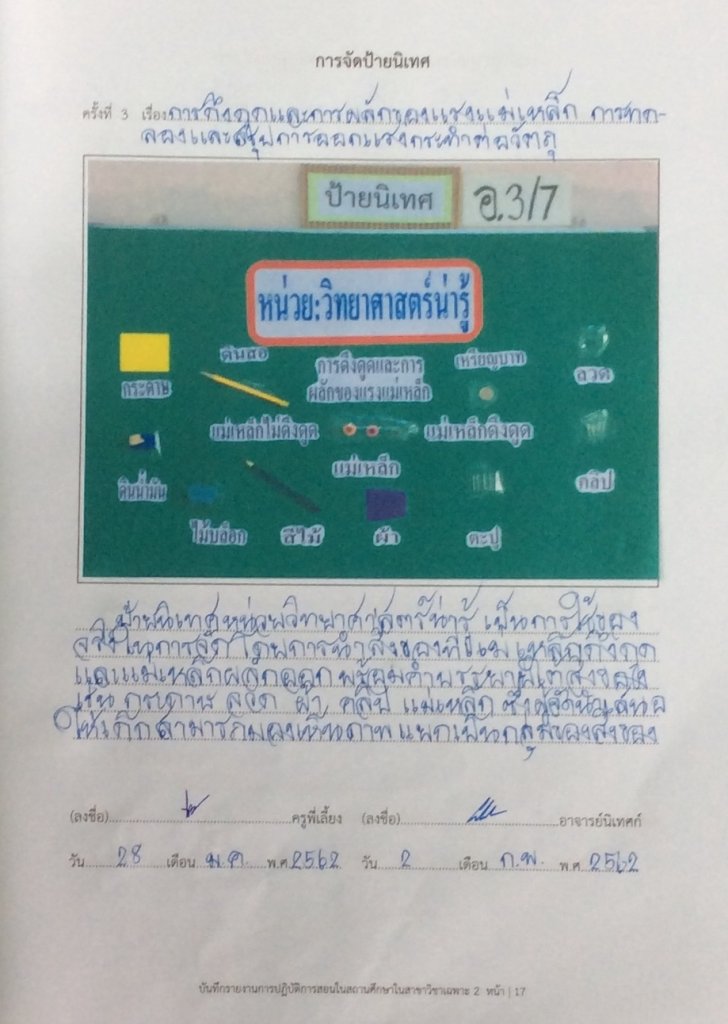 การจัดป้ายนิเทศ
ครั้งที่ 3 เรื่องการดึงดูดและการผลักของแรงแม่เหล็ก การทด-
ลองและสรุปการออกแรงกระทำต่อวัตถุ
ป้ายนิเทศ อ.3/7
หน่วย:วิทยาศาสตร์น่ารู้
กระดาษ
ดินสอ
การดึงดูดและการ
ผลักของแรงแม่เหล็ก
เหรียญบาท
ลวด
แม่เหล็กไม่ดึงดูด
แม่เหล็กดึงดูด
แม่เหล็ก
ดินน้ำมัน
คลิป
ไม้บล็อก
สีไม้
ผ้า
ตะปู
ป้ายนิเทศหน่วยวิทยาศาสตร์น่ารู้ เป็นการใช้ของ
จริงในการจัด โดยการนำสิ่งของที่แม่เหล็กดึงดูด
และแม่เหล็กผลักออก พร้อมคำบรรยายใต้สิ่งของ
เช่น กระดาษ ลวด ผ้า คลิป แม่เหล็ก ซึ่งผู้จัด
ให้เด็กสามารถมองเห็นภาพแยกเป็นกลุ่มของสิ่งของ
(ลงชื่อ) ครูพี่เลี้ยง (ลงชื่อ) อาจารย์นิเทศก์
วัน 28 เดือน ม.ค. พ.ศ.2562 วัน 2 เดือน ก.พ. พ.ศ 2562
บันทึกรายงานการปฏิบัติการสอนในสถานศึกษาในสาขาวิชาเฉพาะ 2 หน้า | 17